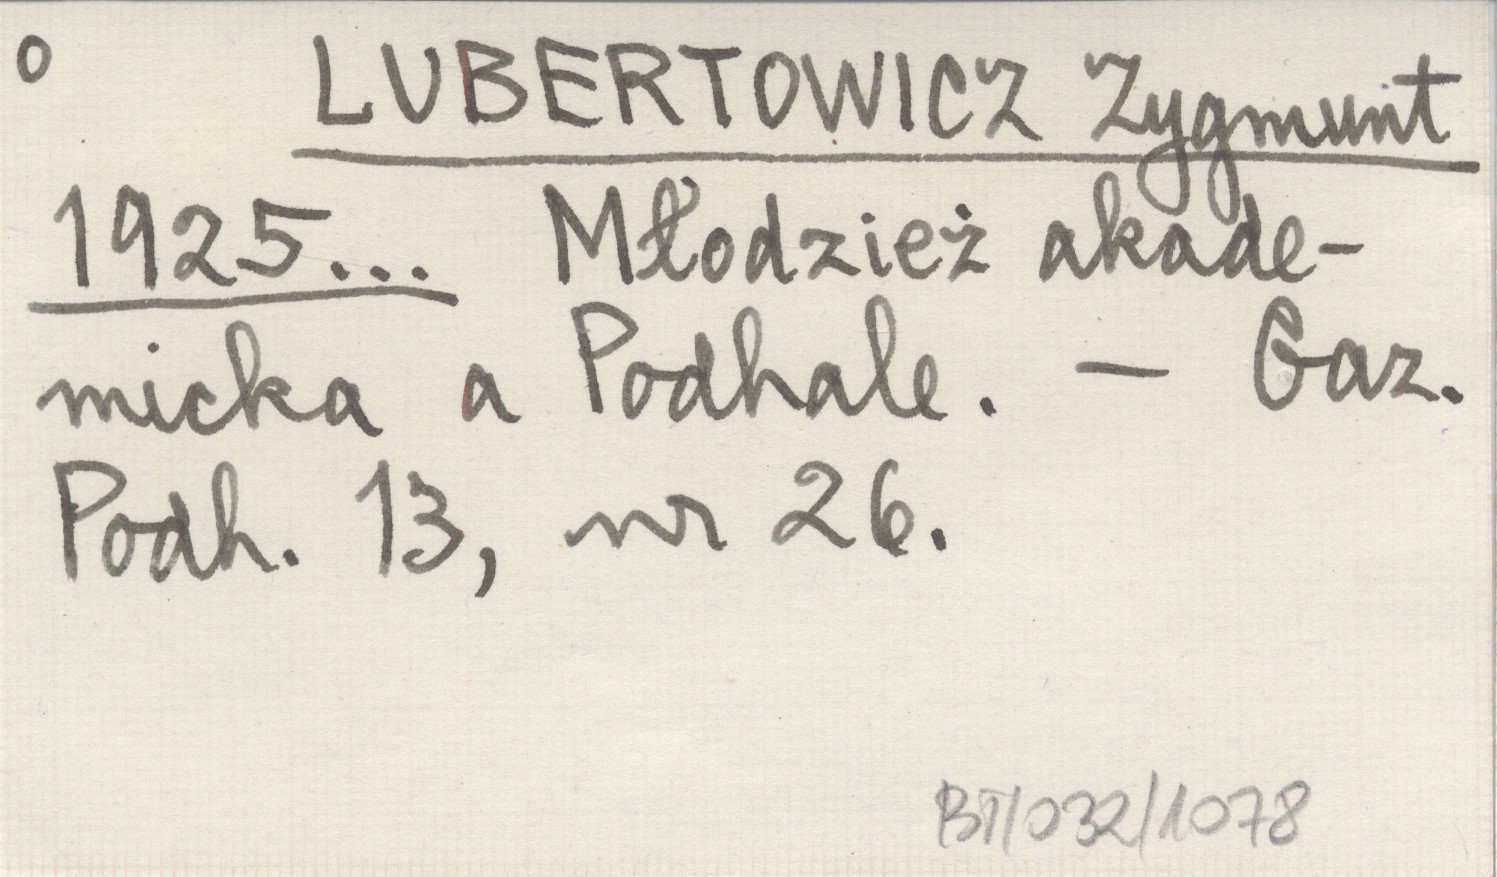 o LUBERTOWICZ Zygmunt
1925... Młodzież akade-
micka a Podhale. — Gaz.
Podh. 13, nr 26.
BT/032/1078